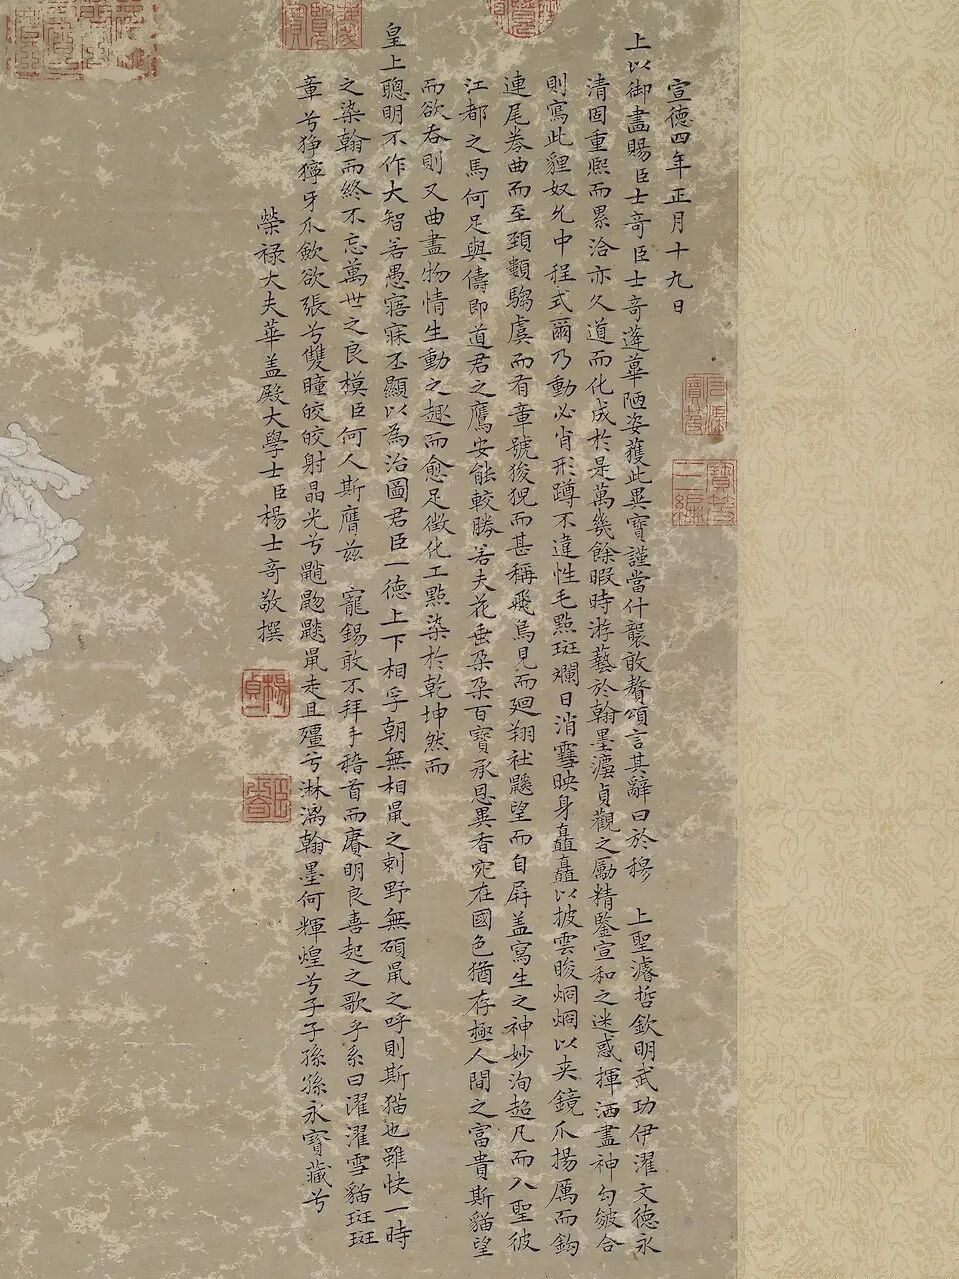 宣德四年正月十九日
上以御畵賜臣士竒臣士竒蓬蓽陋姿蒦此異寶謹當什襲敢贅頌言其辭曰於穆 上聖濬哲欽明武功伊濯文德永
清固重熙而累洽亦久道而化成於是萬幾餘暇時游藝於翰墨瀘貞觀之勵精鑒宣和之迷惑揮洒畵神勾皴合
則寫此貍奴允中程式爾乃動必肖形蹲不違性毛點斑斕日消霽映身矗矗以披雲晙炯炯以夾鏡爪揚厲而鈎
連尾拳曲而至頚顴騶虞而有章號狻猊而甚稱飛鳥見而廻翔社鼷望而自屏盖寫生之神妙洵超凡而入聖彼
江都之馬何足與儔即道君之鷹安能較勝若夫花垂朶朶百寶承恩異香宛在國色猶存極人間之富貴斯貓望
而欲吞則又曲盡物情生動之趣而愈足徴化工點染於乾坤然而
皇上聰明不作大智若愚寤寐丕顯以為治圖君臣一德上下相孚朝無相鼠之刺野無碩鼠之呼則斯猫也雖快一時
之染翰而終不忘萬世之良模臣何人斯膺兹 寵錫敢不拜手稽首而賡明良喜起之歌乎系曰濯濯雪貓斑斑
章兮狰獰牙爪歛欲張兮雙瞳皎皎射晶光兮飀飀鼠走且殭兮淋漓翰墨何輝煌兮子子孫孫永寶藏兮
榮禄大夫華盖殿大學士臣楊士竒敬撰